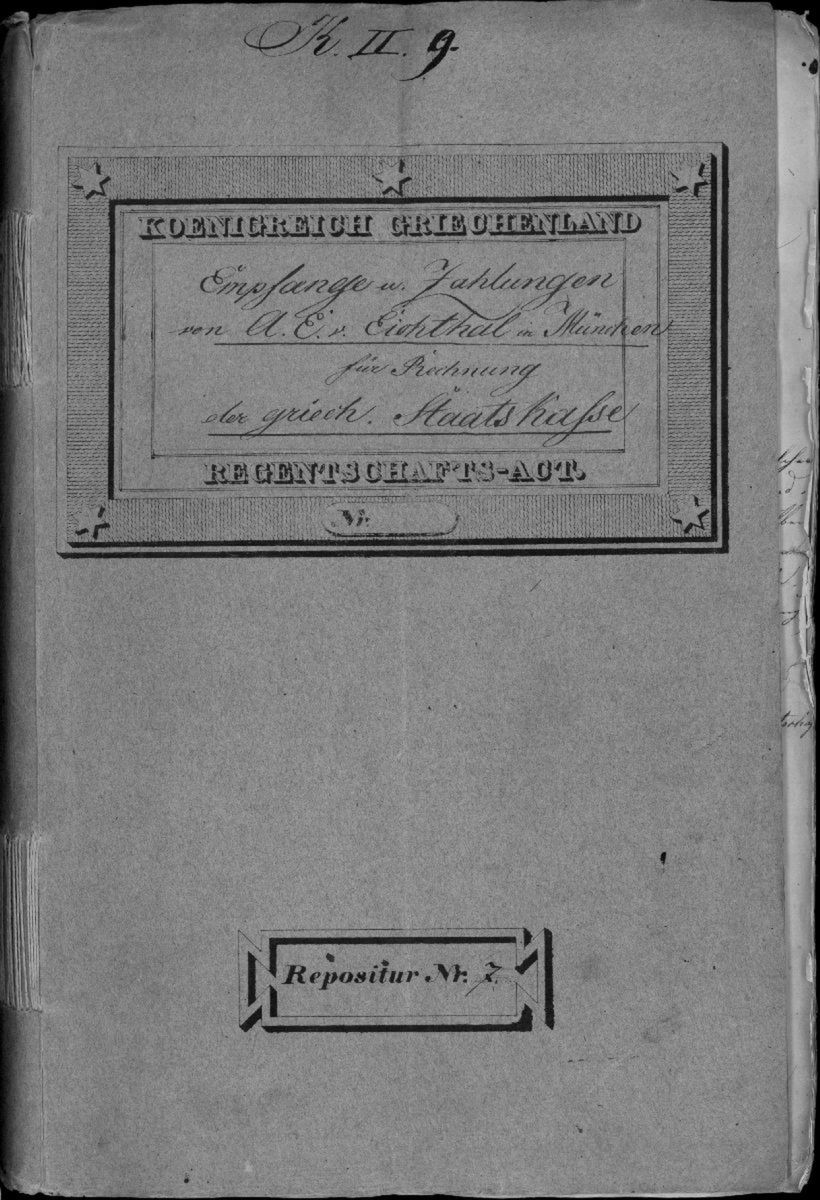 K. II. 9.
KOENIGREICH GRIECHENLAND
Empfänge u. Zahlungen
von A. E. v. Eichthal in München
für Rechnung
der griech. Staatskasse
REGENTSCHAFTS-ACT.
Nr.
Repositur Nr. 7.